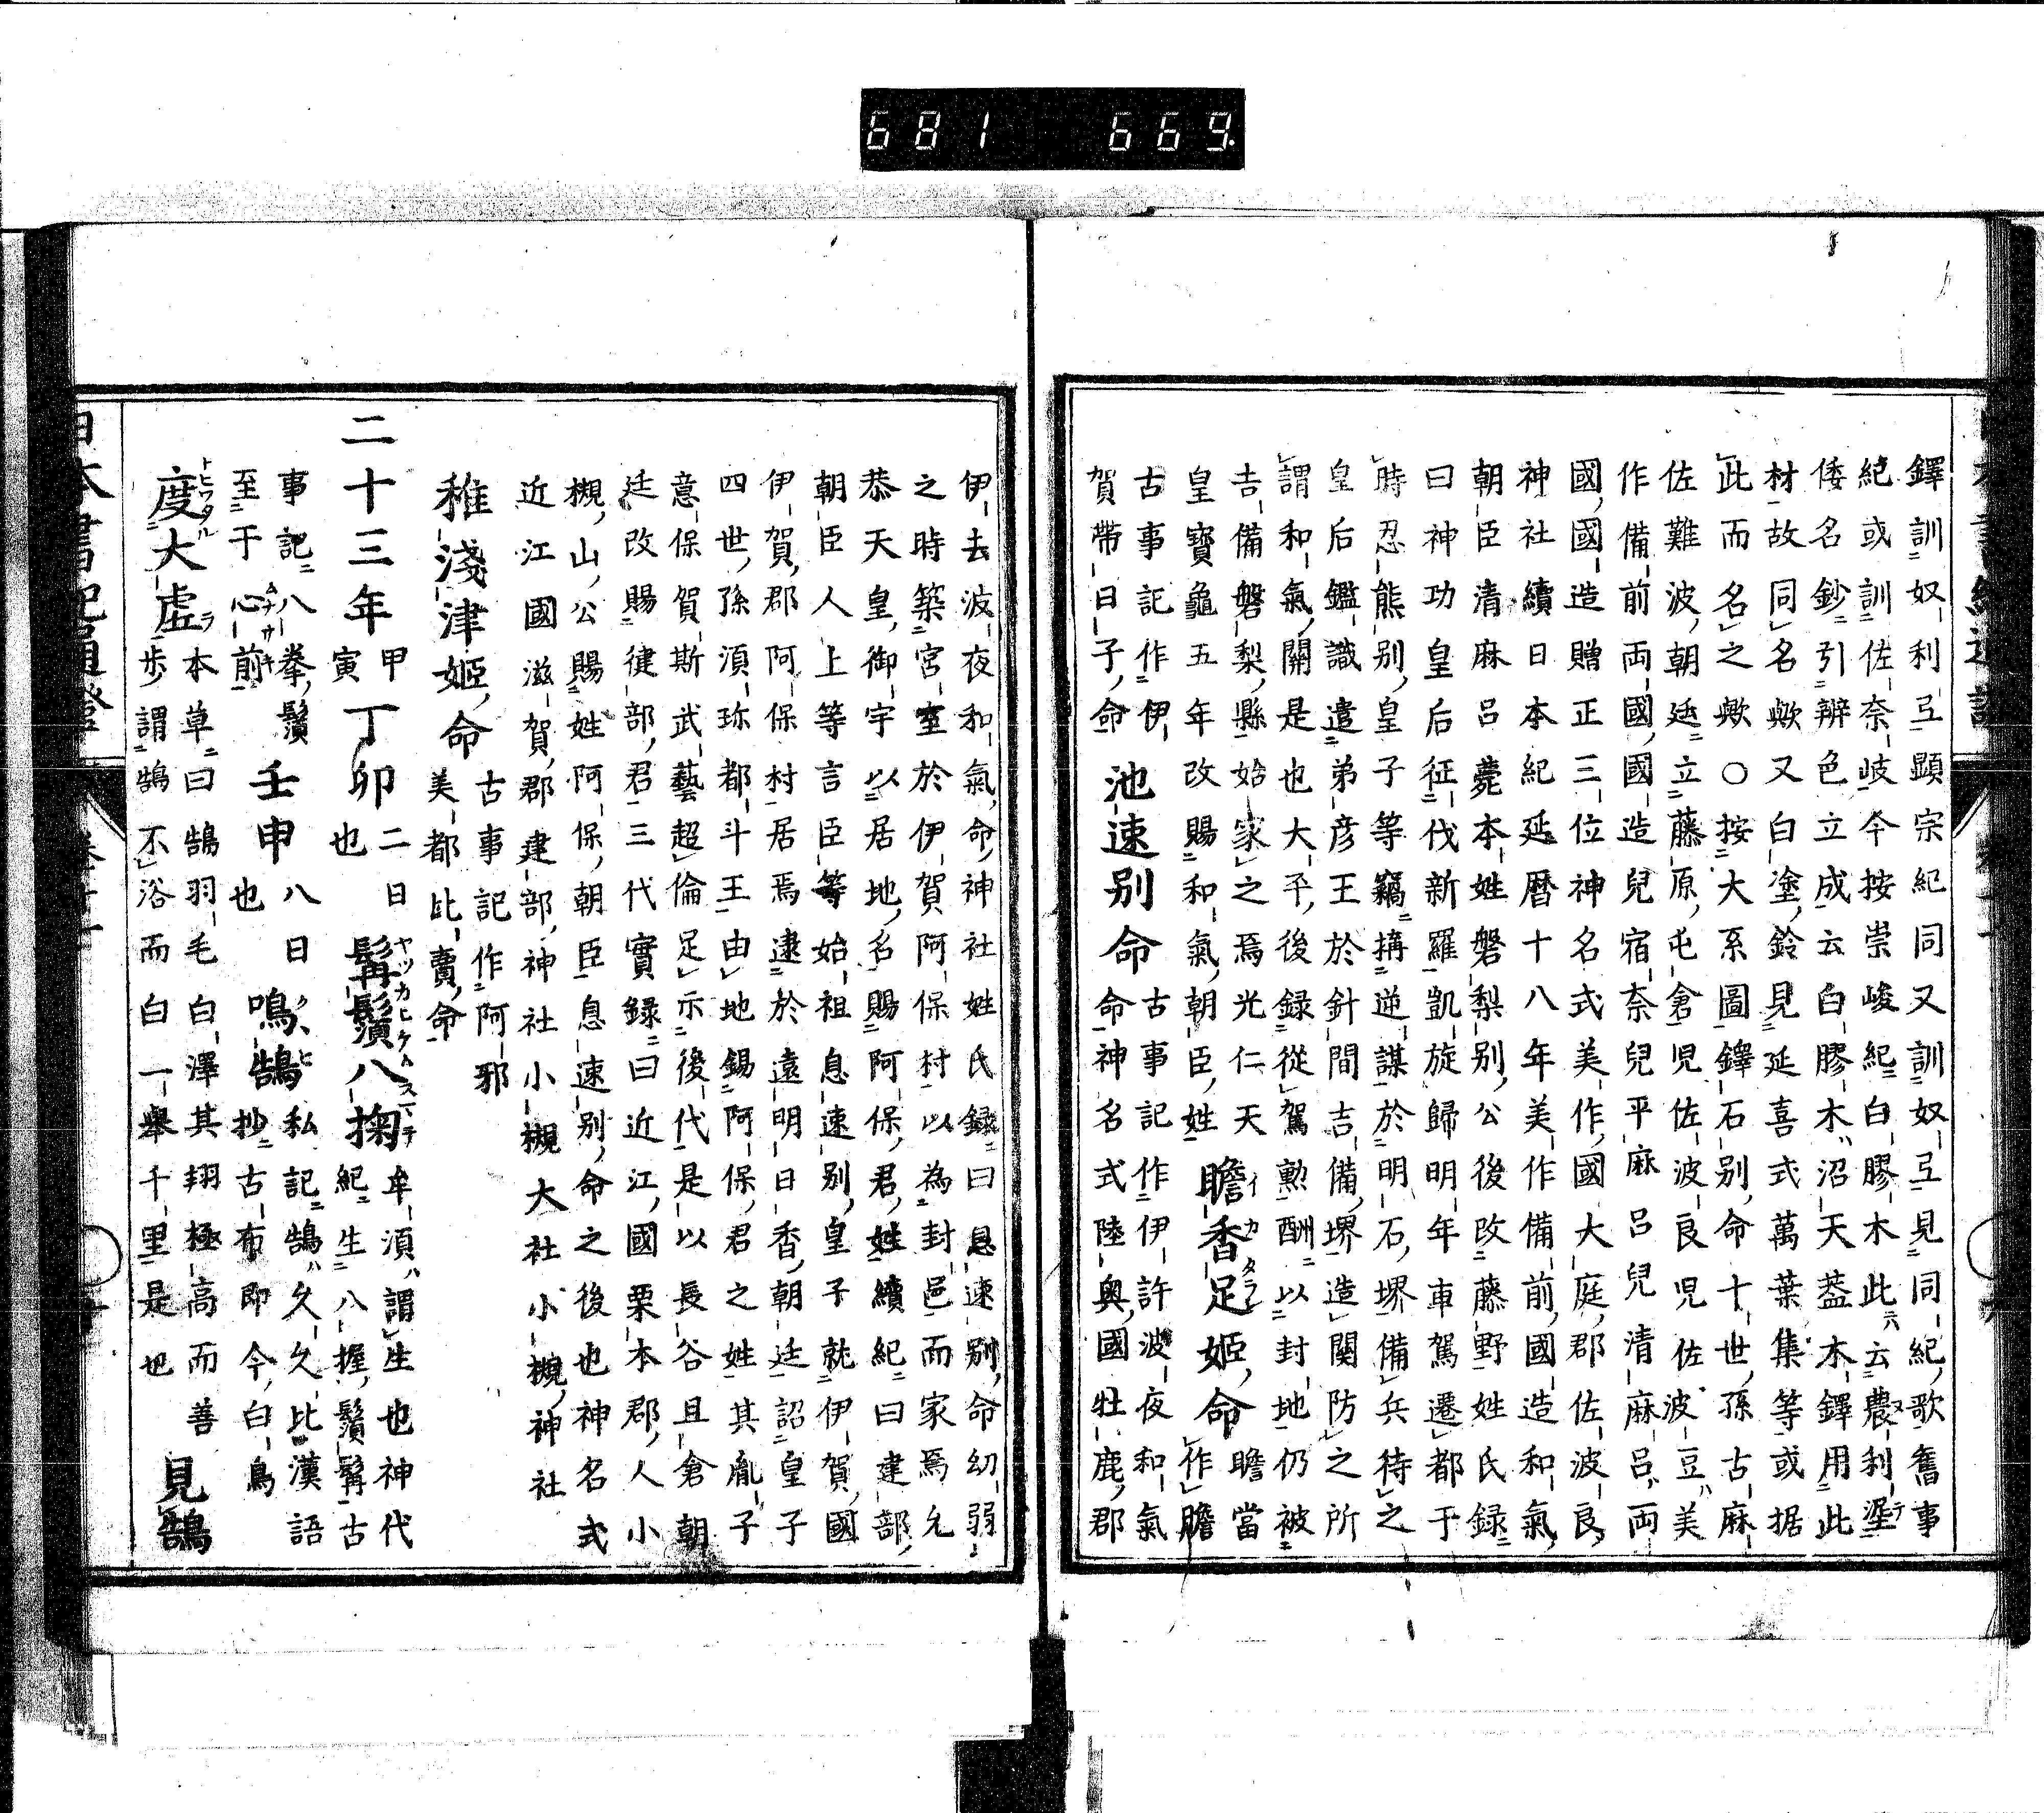 681 669.
鐸訓奴利弖顕宗紀同又訓奴弖見同紀歌舊事
紀或訓佐奈岐今按崇峻紀白膠木此云農利埿
倭名鈔引辨色立成云白膠木沼天葢木鐸用此
材故同名歟又白塗鈴見延喜式萬葉集等或据
此而名之歟○按大系圖鐸石別命十世孫古麻
佐難波朝廷立藤原屯倉児佐波良児佐波豆美
作備前両國國造兒宿奈兒平麻呂兒清麻呂両
國國造贈正三位神名式美作國大庭郡佐波良
神社續日本紀延暦十八年美作備前國造和氣
朝臣清麻呂薨本姓磐梨別公後改藤野姓氏録
曰神功皇后征伐新羅凱旋歸明年車駕還都于
時忍熊別皇子等竊搆逆謀於明石堺備兵待之
皇后鑑識遣弟彦王於針間吉備堺造關防之所
謂和氣關是也大平後録從駕勲酬以封地仍被
吉備磐梨縣始家之焉光仁天
皇寶龜五年改賜和氣朝臣姓 膽香足姫命 瞻當
作膽
古事記作伊
賀帶日子命 池速別命 古事記作伊許波夜和氣
命神名式陸奥國牡鹿郡
伊去波夜和氣命神社姓氏録曰息速別命幼弱
之時築宮室於伊賀阿保村以為封邑而家焉允
恭天皇御宇以居地名賜阿保君姓續紀曰建部
朝臣人上等言臣等始祖息速別皇子就伊賀國
伊賀郡阿保村居焉逮於遠明日香朝廷詔皇子
四世孫湏珎都斗王由地錫阿保君之姓其胤子
意保賀斯武藝超倫足示後代是以長谷旦倉朝
廷改賜健部君三代實録曰近江國栗本郡人小
槻山公賜姓阿保朝臣息速別命之後也神名式
近江國滋賀郡建部神社小槻大社小槻神社
稚淺津姫命 古事記作阿邪
美都比賣命
二十三年 甲
寅 丁卯 二日
也 髯鬚八掬 牟湏謂生也神代
紀生八握鬚髯古
事記八拳鬚
至于心前 壬申 八日
也 鳴鵠 私記鵠久久比漢語
抄古布即今白鳥
度大虚 本草曰鵠羽毛白澤其翔極高而善
歩謂鵠不浴而白一舉千里是也 見鵠